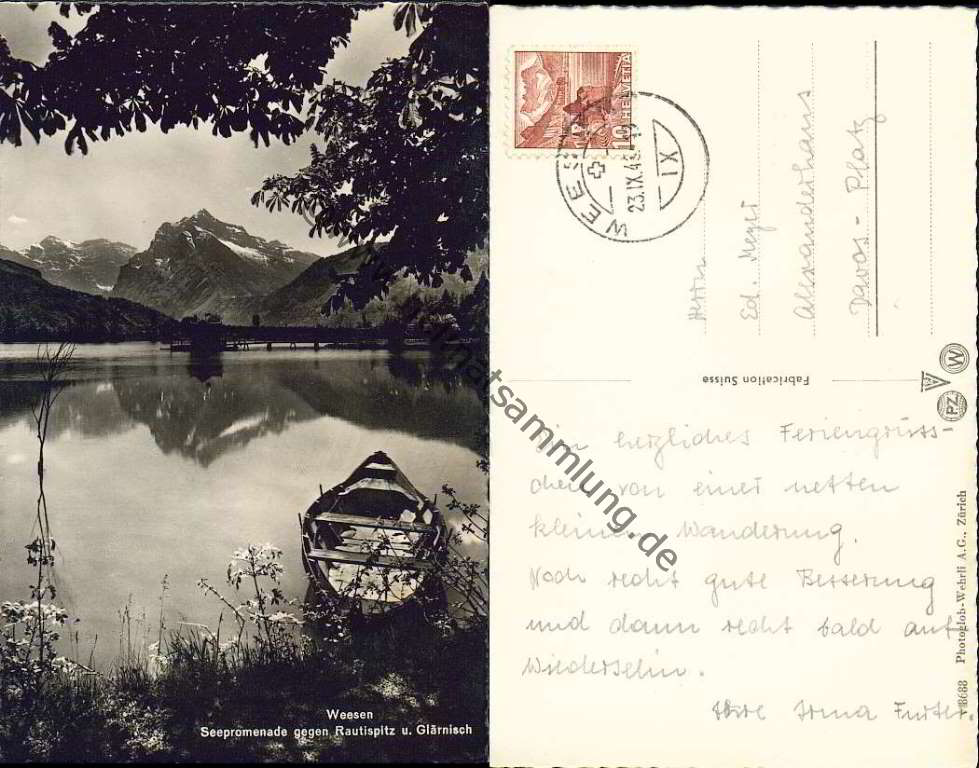 Weesen
Seepromenade gegen Rautispitz u. Glärnisch
HELVETIA
10
WEESEN
23.IX.49
IX
Herrn
Ed.
Alexanderhaus
Davos - Platz
Fabrication Suisse
W
PZ
herzliches Feriengrüss-
chen von einer netten
kleinen Wanderung.
Noch recht gute Besserung
und dann recht bald auf
Wiedersehn.
Ihre Irma Furter.
Photoglob-Wehrli A.G., Zürich
sammlung.de